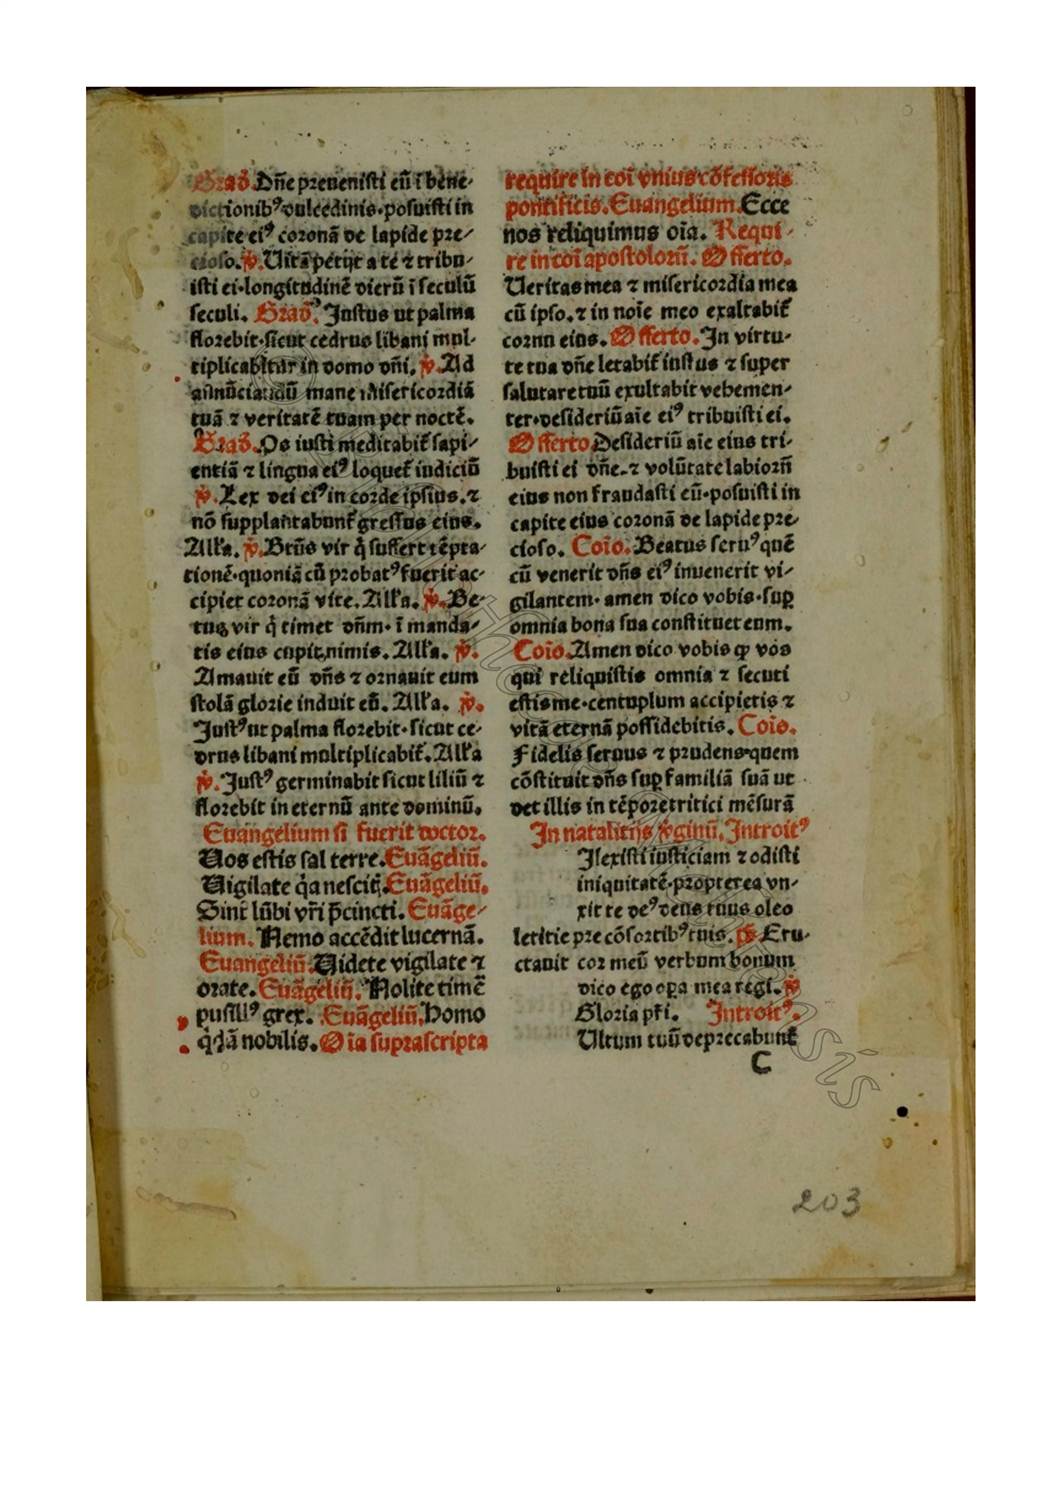 Grad̄. Dn̄e preuenisti eū ī bene-
dictionibꝰ dulcedinis·posuisti in
capite eiꝰ coronā de lapide pre-
cioso. ℣. Uitā petijt a te ⁊ tribu-
isti ei·longitudinē dierū ī seculū
seculi. Grad̄. Justus ut palma
florebit·sicut cedrus libani mul-
tiplicabitur in domo dn̄i. ℣. Ad
annūciandū mane misericordiā
tuā ⁊ veritatē tuam per noctē.
Grad̄. Os iusti meditabit̄ sapi-
entiā ⁊ lingua eiꝰ loquet̄ iudiciū
℣. Lex dei eiꝰ in corde ipsius. ⁊
nō supplantabunt̄ gressus eius.
All'a. ℣. Bt̄us vir q̇ suffert tēpta-
tionē·quoniā cū probatꝰ fuerit ac-
cipiet coronā vite. All'a. ℣. Be-
tus vir q̇ timet dn̄m· ī manda-
tis eius cupit nimis. All'a. ℣.
Amauit eū dn̄s ⁊ ornauit eum
stolā glorie induit eū. All'a. ℣.
Justꝰ ut palma florebit·sicut ce-
drus libani multiplicabit̄. All'a
℣. Justꝰ germinabit sicut liliū ⁊
florebit in eternū ante dominū.
Euangelium si fuerit doctor.
Uos estis sal terre. Euāgeliū.
Uigilate q̇a nescitꝭ. Euāgeliū.
Sint lūbi vr̄i p̄cincti. Euāge-
lium. Nemo accēdit lucernā.
Euangeliū. Uidete vigilate ⁊
orate. Euāgeliū. Nolite timē
pusillꝰ grex. Euāgeliū. Homo
q̇dā nobilis. Oīa suprascripta
require in coī vnius cōfessoris
pontificis. Euangelium. Ecce
nos reliquimus oīa. Requi-
re in coī apostolorū. Offerto.
Ueritas mea ⁊ misericordia mea
cū ipso. ⁊ in noīe meo exaltabit̄
cornu eius. Offerto. In virtu-
te tua dn̄e letabit̄ iustus ⁊ super
salutare tuū exultabit vehemen-
ter·desideriū aīe eiꝰ tribuisti ei.
Offerto Desideriū aīe eius tri-
buisti ei dn̄e. ⁊ volūtate labiorū
eius non fraudasti eū·posuisti in
capite eius coronā de lapide pre-
cioso. Coīo. Beatus seruꝰ quē
cū venerit dn̄s eiꝰ inuenerit vi-
gilantem· amen dico vobis·sup̱
omnia bona sua constituet eum.
Coīo. Amen dico vobis ꝙ vos
qui reliquistis omnia ⁊ secuti
estis me·centuplum accipietis ⁊
vitā eternā possidebitis. Coīo.
Fidelis seruus ⁊ prudens·quem
cōstituit dn̄s sup̱ familiā suā ut
det illis in tēpore tritici mēsurā
In natalitijs v̇ginū. Introitꝰ
Ilexisti iusticiam ⁊ odisti
iniquitatē·propterea vn-
xit te deꝰ deus tuus oleo
letitie pre cōsortibꝰ tuis. ps̄ Eru-
ctauit cor meū verbum bonum
dico ego oꝑa mea regi. ℣
Gloria pr̄i. Introitꝰ.
Ultum tuū deprecabunt̄
C
203